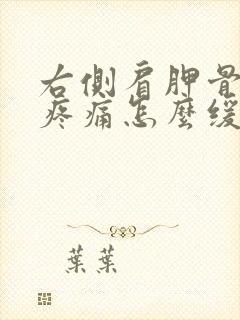 右側肩胛骨
疼痛怎麼緩
葉葉